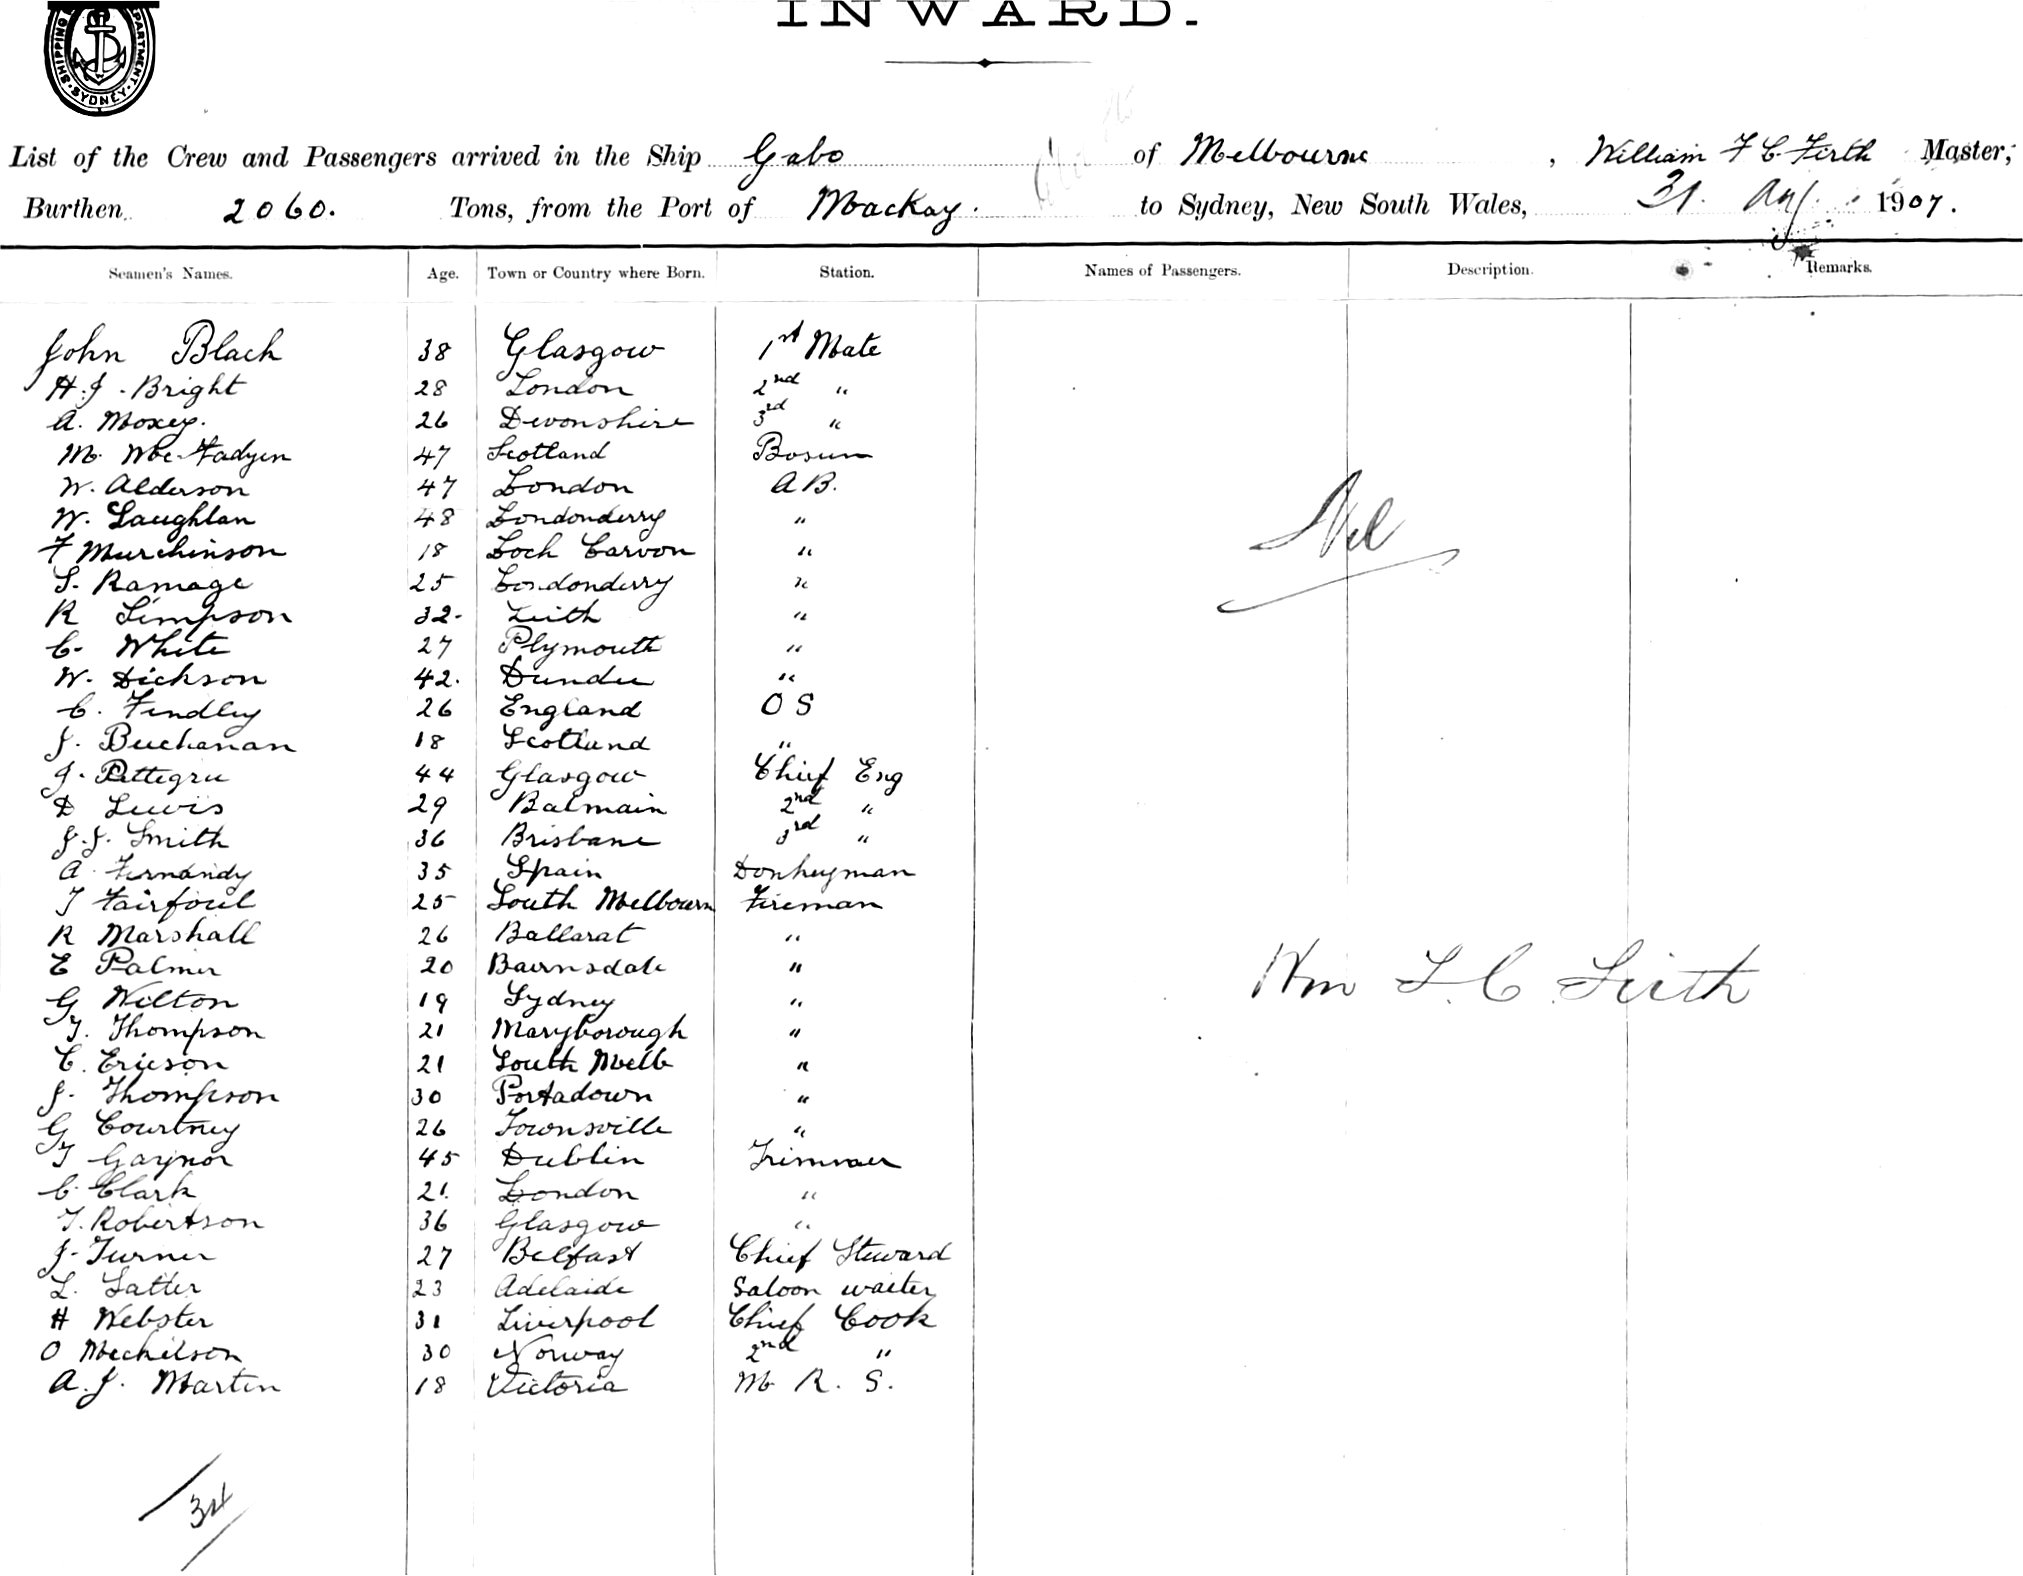 INWARD.
SHIPPING DEPARTMENT SYDNEY
List of the Crew and Passengers arrived in the Ship Gabo of Melbourne, William F C. Firth Master,
Burthen 2060. Tons, from the Port of Mackay. to Sydney, New South Wales, 31. Aug. 1907.
Seamen's Names. Age. Town or Country where Born. Station. Names of Passengers. Description. Remarks.
John Black 38 Glasgow 1st Mate
H. J. Bright 28 London 2nd "
A. Moxey. 26 Devonshire 3rd "
M. Mc-Fadyen 47 Scotland Bosun
W. Alderson 47 London A B.
W. Laughlan 48 Londonderry "
F Murchinson 18 Loch Carvon "
S. Ramage 25 Londonderry "
R Simpson 32. Leith "
C. White 27 Plymouth "
W. Dickson 42. Dundee "
C. Findley 26 England O S
J. Buchanan 18 Scotland "
J. Pettegru 44 Glasgow Chief Eng
D Lewis 29 Balmain 2nd "
J. J. Smith 36 Brisbane 3rd "
A. Fernandy 35 Spain Donkeyman
T Fairfoul 25 South Melbourn Fireman
R Marshall 26 Ballarat "
E Palmer 20 Bairnsdale "
G Wilton 19 Sydney "
T. Thompson 21 Maryborough "
C. Ericson 21 South Melb "
J. Thompson 30 Portadown "
G Courtney 26 Townsville "
T Gaynor 45 Dublin Trimmer
C. Clark 21. London "
T. Robertson 36 Glasgow "
J. Turner 27 Belfast Chief Steward
L. Latter 23 Adelaide Saloon waiter
H Webster 31 Liverpool Chief Cook
O Mechelson 30 Norway 2nd "
A. J. Martin 18 Victoria M R. S.
Nil
Wm F. C. Firth
34